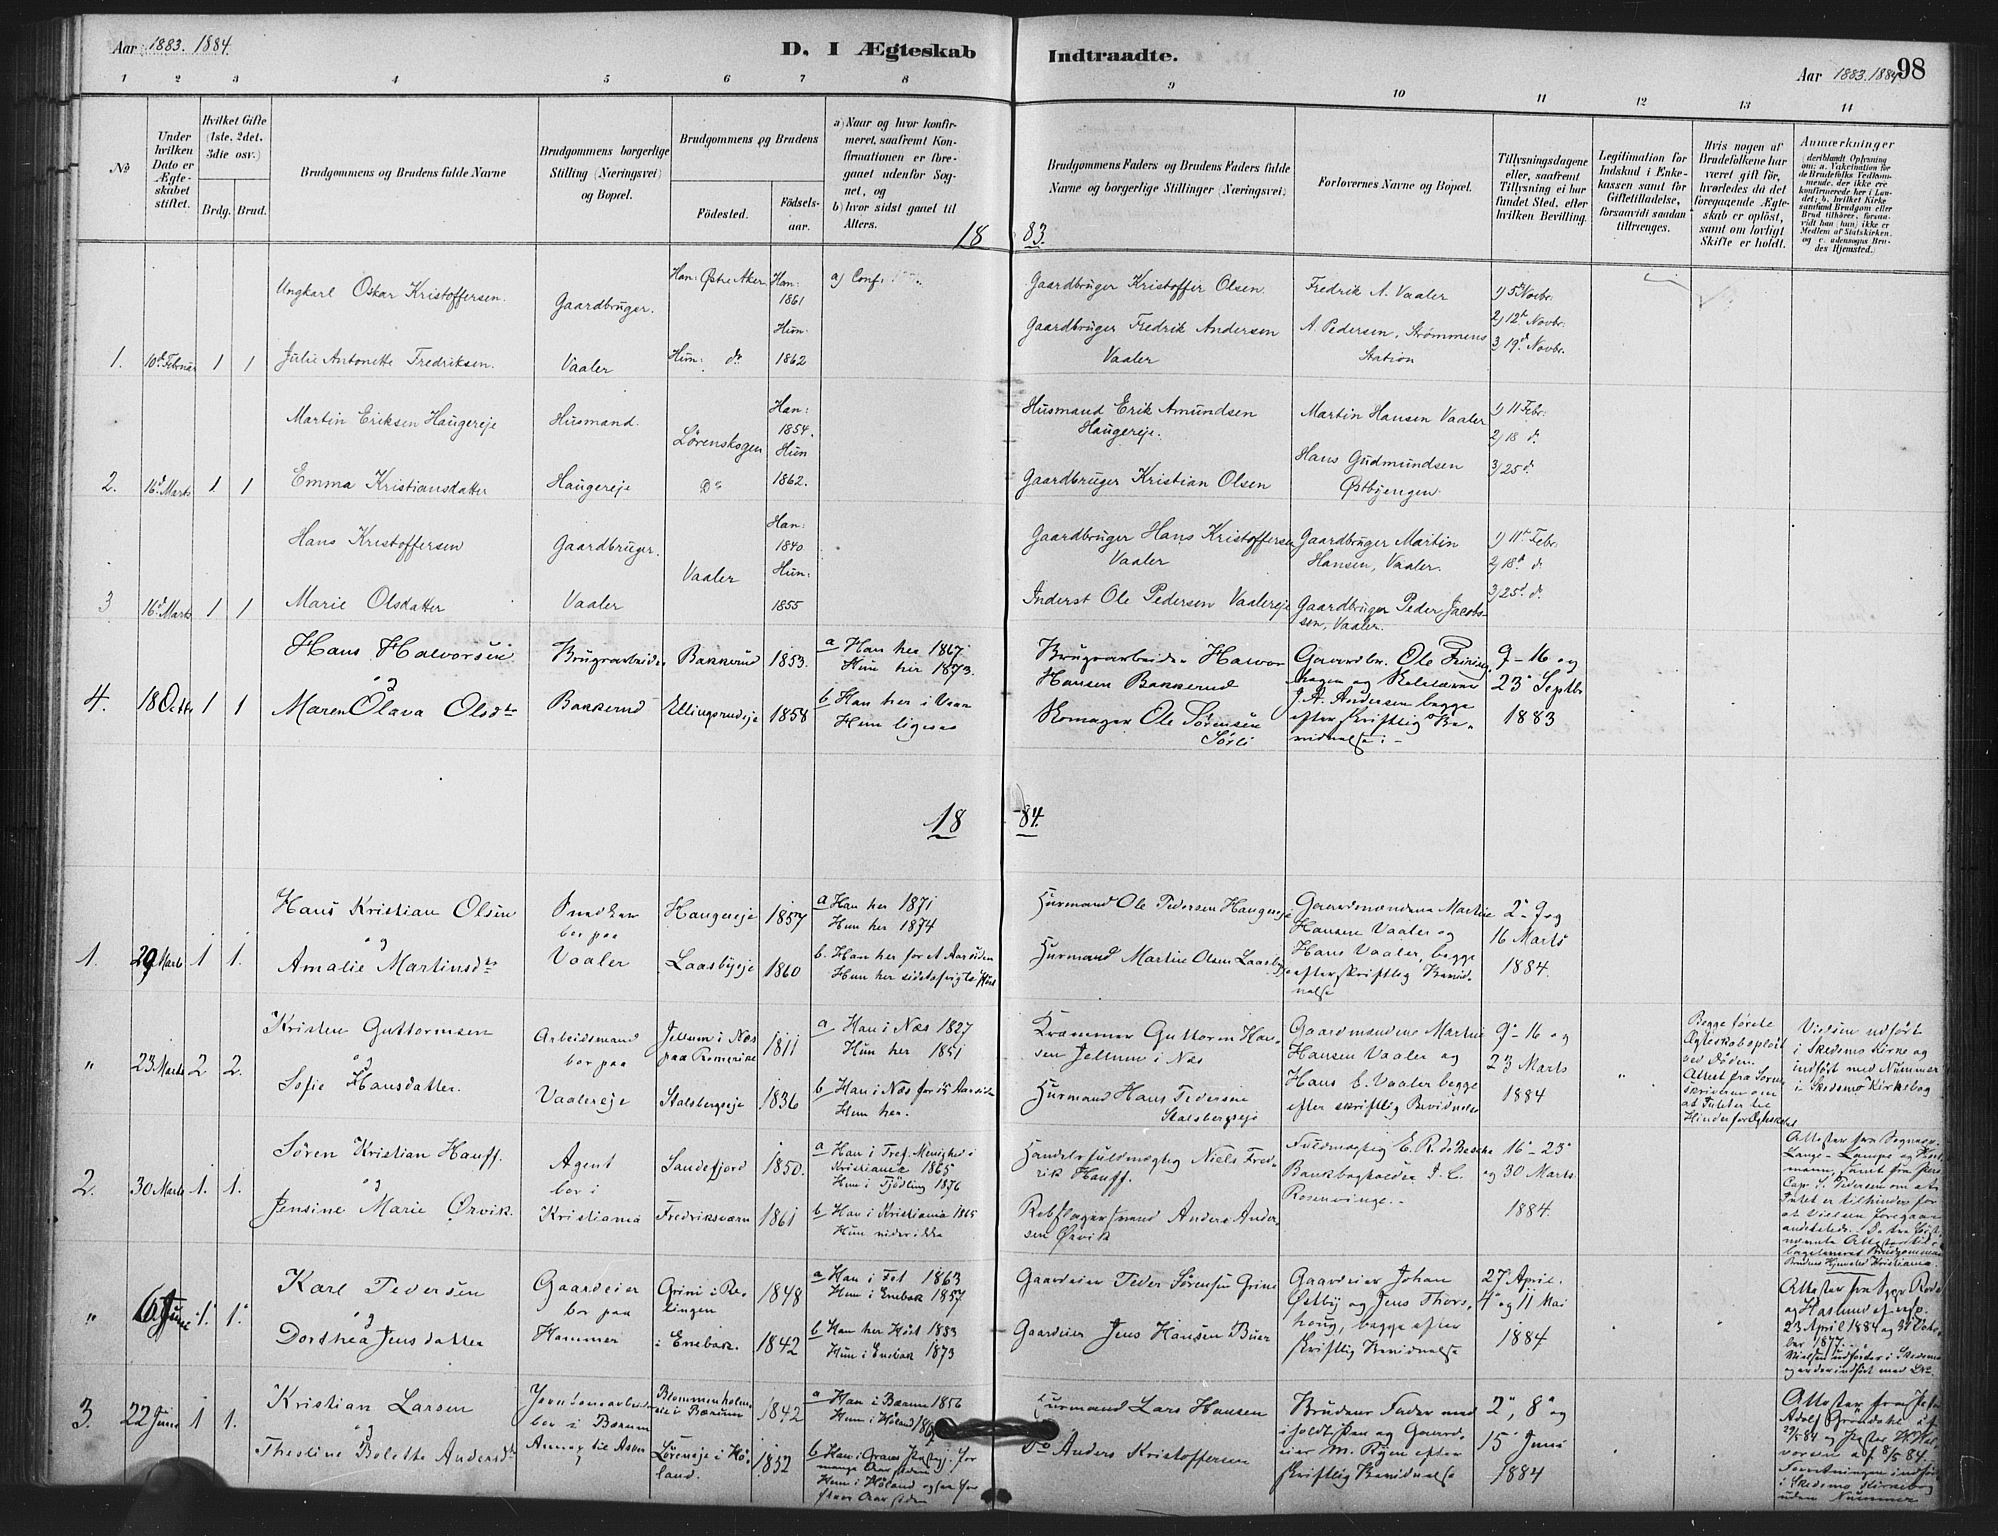 Aar 1883. 1884.
D. I Ægteskab Indtraadte.
Aar 1883. 1884 98
1 2 3 4 5 6 7 8 9 10 11 12 13 14
No
Under hvilken Dato er Ægteskabet stiftet.
Hvilket Gifte (1ste, 2det, 3die osv.)
Brdg. Brud.
Brudgommens og Brudens fulde Navne
Brudgommens borgerlige Stilling (Næringsvei) og Bopæl.
Brudgommens og Brudens
Fødested.
Fødselsaar.
a) Naar og hvor konfirmeret, saafremt Konfirmationen er foregaaet udenfor Sognet, og
b) hvor sidst gaaet til Alters.
Brudgommens Faders og Brudens Faders fulde Navne og borgerlige Stillinger (Næringsvei)
Forlovernes Navne og Bopæl.
Tillysningsdagene eller, saafremt Tillysning ei har fundet Sted, efter hvilken Bevilling.
Legitimation for Indskud i Enkekassen samt for Giftetilladelse, forsaavidt saadan tiltrænges.
Hvis nogen af Brudefolkene har været gift før, hvorledes da det foregaaende Ægteskab er opløst, samt om lovligt Skifte er holdt.
Anmærkninger
1883.
1. 10d Februar 1 1
Ungkarl Oskar Kristoffersen.
Julie Antonette Fredriksen.
Gaardbruger.
Vaaler
Han: Østre Aker
Hun: do
Han: 1861
Hun: 1862
a) Conf:
Gaardbruger Kristoffer Olsen
Gaardbruger Fredrik Andersen
Vaaler
Fredrik A. Vaaler
A. Pedersen, Strømmens
Station
1) 5d Novbr.
2) 12d Novbr.
3) 19d. Novbr.
2. 16d Marts 1 1
Martin Eriksen Haugereje
Emma Kristiansdatter
Husmand.
Haugereje
Lørenskogen
Do
Han: 1854.
Hun 1862.
Husmand Erik Amundsen
Haugereje.
Gaardbruger Kristian Olsen
Martin Hansen Vaaler
Hans Gudmundsen
Østbyengen
1) 11 Febr:
2) 18 d.
3) 25 d.
3 16d Marts 1 1
Hans Kristoffersen
Marie Olsdatter
Gaardbruger.
Vaaler
Vaaler
Han: 1840
Hun: 1855
Gaardbruger Hans Kristoffersen
Vaaler
Inderst Ole Pedersen Vaalereje
Gaardbruger Martin
Hansen, Vaaler.
Gaardbruger Peder Jacobs-
sen, Vaaler.
1) 11te Febr.
2) 18d. d.
3) 25d. d.
4. 18 Octbr 1 1
Hans Halvorsen
og
Maren Olava Olsdtr
Brugsarbeider
Bakkerud
Bakkerud
Ellingsrudeje
1853.
1858
a Han her 1867.
Hun her 1873.
b Han her i Vaar
Hun ligesaa
Brugsarbeider Halvor
Hansen Bakkerud
Skomager Ole Sørensen
Sørli
Gaardbr. Ole
og
J. A. Andersen begge
efter skriftlig Be-
vidnelse i -
9 - 16 og
23 Septbr
1883
1884.
1. 29 Marts 1 1.
Hans Kristian Olsen
og
Amalie Martinsdtr
Snedker
bor paa
Vaaler
Haugereje
Laasbyeje
1857
1860
a Han her 1871
Hun her 1874
b. Han her for et Aar siden
Hun her sidstafvigte Høst
Husmand Ole Pedersen Haugereje
Husmand Martin Olsen Laasby
Gaardmændene Martin
Hansen Vaaler og
Hans Vaaler, begge
efter skriftlig Bevid-
nelse
2. 9 og
16 Marts
1884.
" 23 Marts 2 2.
Kristen Guttormsen
og
Sofie Hansdatter.
Arbeidsmand
bor paa
Vaalereje
Jellum i Næs
paa Romerike
Stalsbergeje
1811
1836
a Han i Næs 1827
Hun her 1851
b Han i Næs for 15 Aar siden
Hun her.
Kræmmer Guttorm Han-
sen Jellum i Næs
Husmand Hans Pedersen
Stalsbergeje
Gaardmændene Martin
Hansen Vaaler og
Hans C. Vaaler begge
efter skriftlig Bevidnelse
9 - 16 og
23 Marts
1884
"
Begge førete
Ægteskab opløst
ved Døden.
Attest fra Soren-
skriveren om
at Intet er til
Hinder for Ægteskabet
Vielsen udført
i Skedsmo Kirke og
indført med Nummer
i Skedsmo Kirkebog
2. 30 Marts 1. 1.
Søren Kristian Hauff.
og
Jensine Marie Ørvik.
Agent
bor i
Kristiania
Sandefjord
Fredriksværn
1850.
1861
a Han i Tref. Menighed i
Kristiania 1865
Hun i Tjødling 1876
b Han i Kristiania 1865
Hun vides ikke
Handelsfuldmægtig Niels Fred-
rik Hauff.
Rebslagersvend Anders Ander-
sen Ørvik
Fuldmægtig E. R. de Besche
Bankbogholder J. C.
Rosenvinge. -
16 - 23
og 30 Marts
1884.
" 6 Juni 1. 1.
Karl Pedersen
og
Dorthea Jensdatter
Gaardeier
bor paa
Hammer
Grini i Re-
lingen
i Enebak.
1848
1842
a Han i Fet 1863
Hun i Enebak 1857
b Han her Høst 1883
Hun i Enebak 1873
Gaardeier Peder Sørensen Grini
Gaardeier Jens Hansen Buer
Gaardeier Johan
Østby og Jens Thors-
houg, begge efter
skriftlig Bevidnelse
27 April.
4 og 11 Mai
1884
Attester fra
og Haslund af resp.
23 April 1884 og 31 Octo-
ber 1877.
Vielsen udført i Skedsmo
og er der indført med No.
3. 22 Juni 1 1.
Kristian Larsen
og
Theoline Bolette Andersdtr
Jernstøner
bor i Bærum
Annex til Asker
Blommenholm-
eie i Bærum
Løreneje i Hø-
land.
1842
1852
a Han i Bærum 1856
Hun i Høland 186
b Han i Grans Præstegj. for
mange Aar siden
Hun i Høland ogsaa for
flere Aar siden
Husmand Lars Hansen
Do Anders Kristoffersen
Brudens Fader med
og Gaard-
eier M. Ryen efter
skriftlig Bevidnelse
2, 8 og
15 Juni
1884
Attester fra
Adolf Grøndahl af
29/5 84 og Præster Hal-
vorsen af 8/5 84.
Forretningen indført
i Skedsmo Kirkebog
uden Nummer